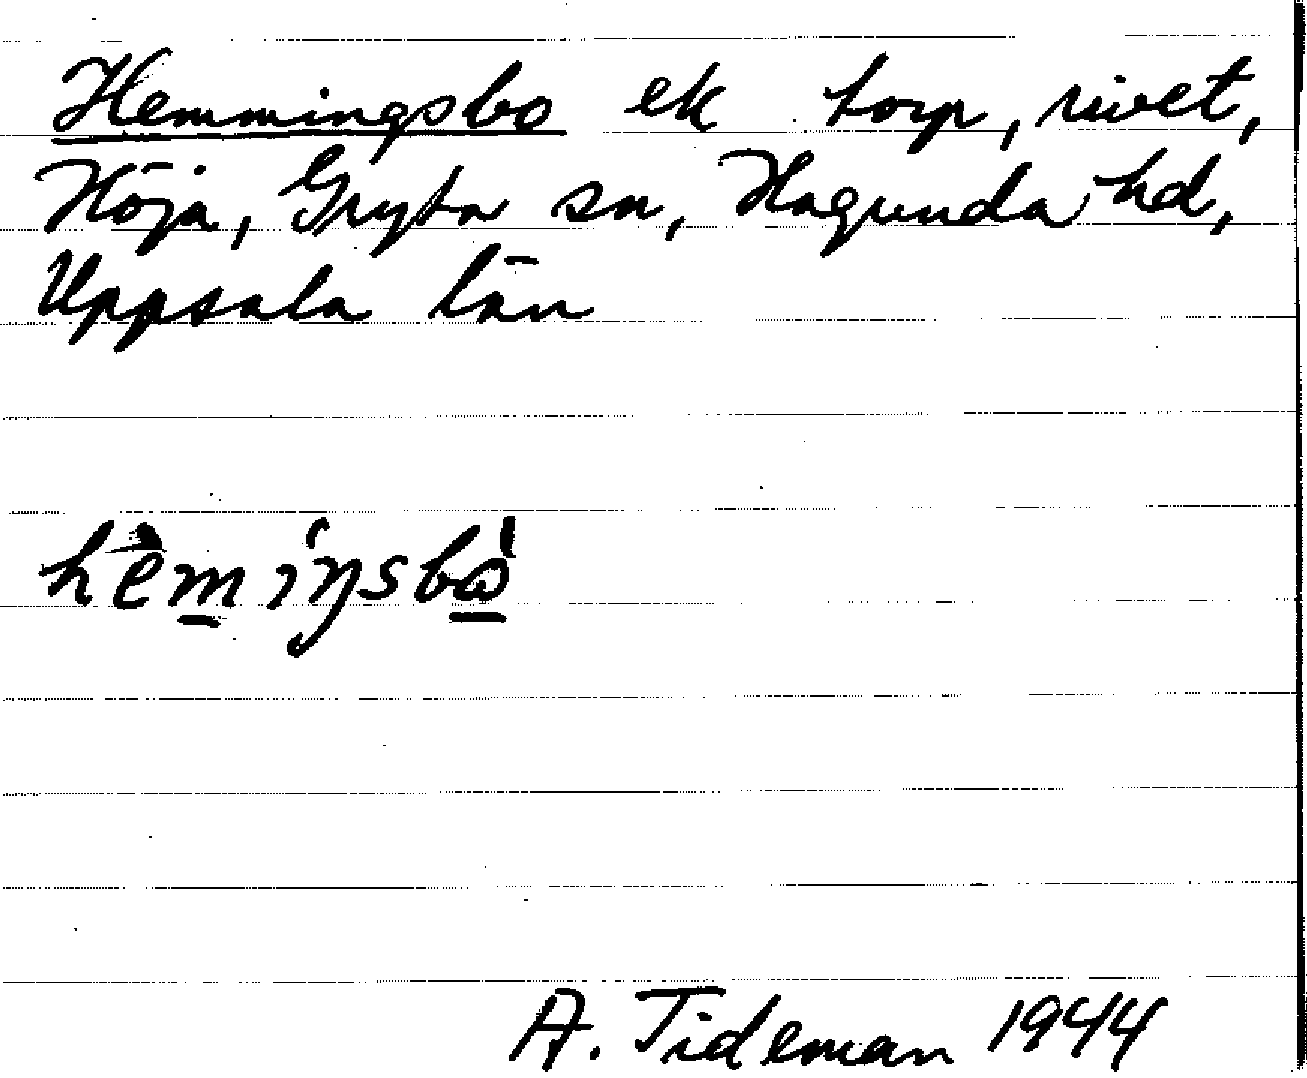 Hemmingsbo ek torp, rivet,
Höja, Gryta sn, Hagunda hd,
Uppsala län
hèmíŋsbò
A. Tideman 1944